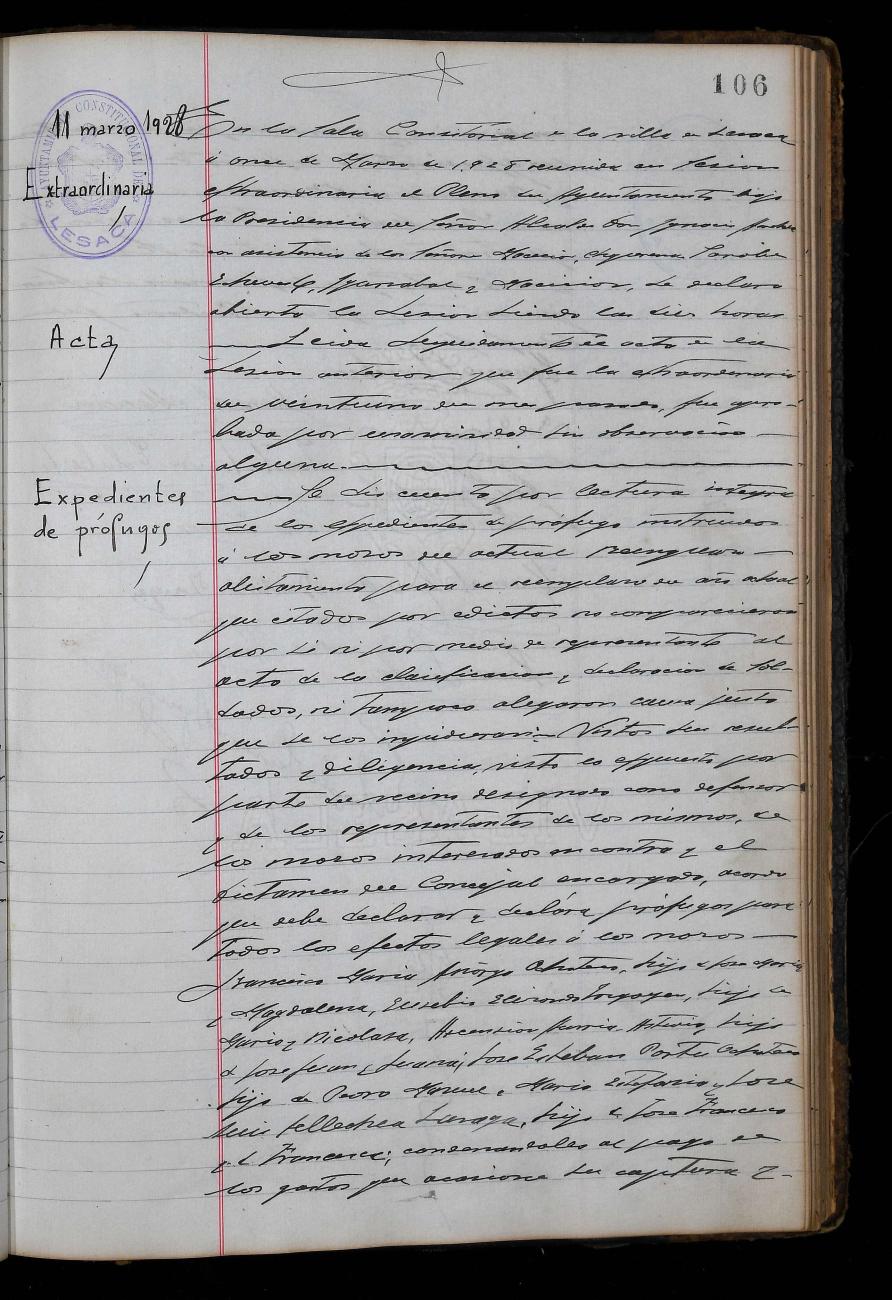 106
11 marzo 1928
Extraordinaria
AYUNTAMIENTO CONSTITUCIONAL DE
LESACA
Acta
Expedientes
de prófugos
En la Sala Consitorial de la villa de Lesaca
á once de Marzo de 1.928 reunida en sesion
extraordinaria el Pleno del Ayuntamiento bajo
la Presidencia del Señor Alcalde Don Ignacio
con asistencia de los Señores
se declara
abierta la sesion siendo las diez horas
Leida seguidamente el acta de la
sesion anterior que fue la extraordinaria
de veintiuno del mes pasado, fue apro-
bada por unanimidad sin observación
alguna.
Se dió cuenta por lectura integra
de los expedientes de prófugo instruidos
á los mozos del actual
alistamiento para el reemplazo del año actual
que citados por edictos no comparecieron
por sí ni por medio de representante al
acto de la clasificacion y declaracion de sol-
dados, ni tampoco alegaron causa justa
que se los impidiera. Vistos sus resul-
tados y diligencia, visto lo expuesto por
parte del vecino designado como defensor
y de los representantes de los mismos, de
los mozos interesados en contra y el
dictamen del Concejal encargado, acordo
que debe declarar y declara prófugos para
todos los efectos legales á los mozos
Francisco Maria, hijo de Jose Maria
y Magdalena, Eusebio Elizondo, hijo de
Maria y Nicolasa, Ascensión, hijo
de Jose Juan y Juana; Jose Esteban Portu
hijo de Pedro Manuel y Maria Estefania y Jose
Luis Tellechea, hijo de Jose Francisco
y de Francisca; condenandoles al pago de
los gastos que ocasione su captura y